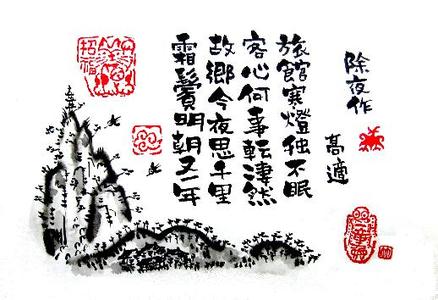 除夜作
高適
旅館寒燈独不眠
客心何事転凄然
故郷今夜思千里
霜鬢明朝又一年
招福